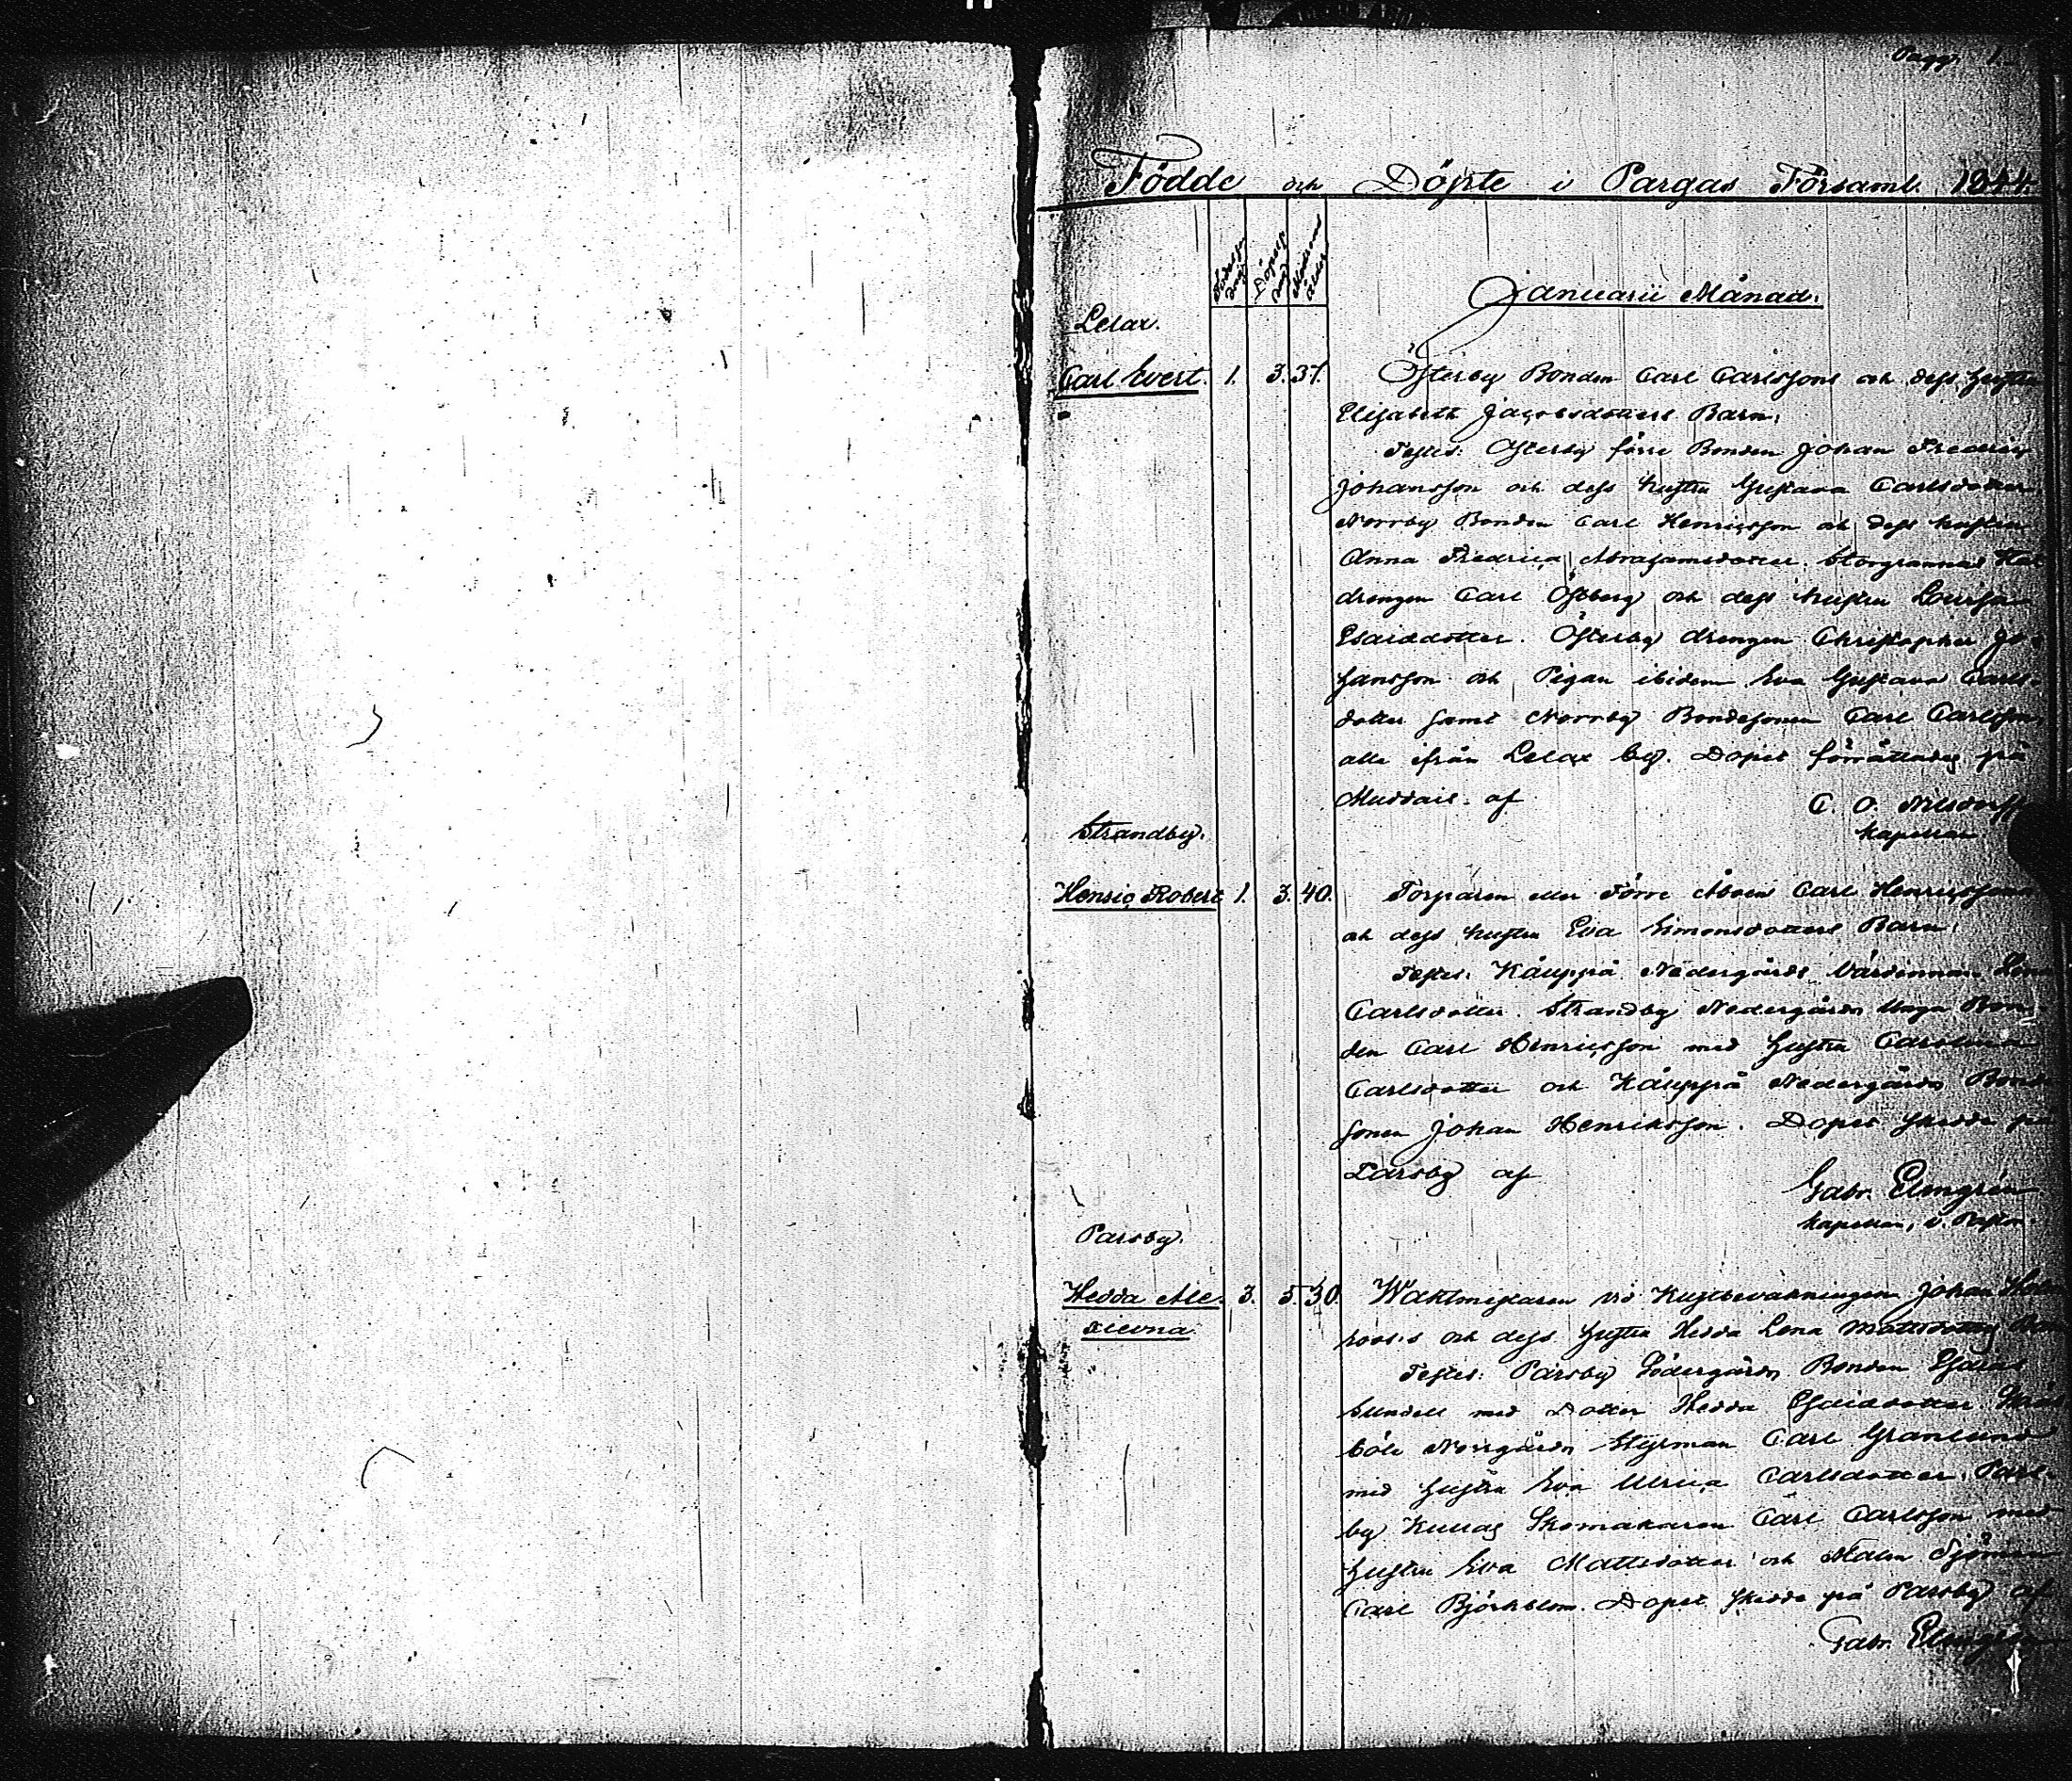 Pagg. 1.
Födde och Döpte i Pargas Församl. 1844.
Födelse dag
Döpelse dag
Moderns ålder
Januarii Månad.
Lelax.
Carl Evert. 1. 3. 37. Österby Bonden Carl Carlssons och dess hustru
Elisabeth Jacobsdotters Barn.
Testes: Österby förre Bonden Johan Fredric
Johansson och dess hustru Gustava Carlsdotter.
Norrby Bonden Carl Henricsson och dess hustru
Anna Fredrica Abrahamsdotter. Storgrannas
drengen Carl Öfberg och dess hustru Lovisa
Esaiædotter. Österby drengen Christopher Jo-
hansson och Pigan ibidem Eva Gustava Carls-
dotter samt Norrby Bondesonen Carl Carlsson,
alla ifrån Lelax by. Dopet förrättades på
Muddais af
C. O. Nilsdorff
Kapellan
Strandby.
Henric Robert 1. 3. 40. Torparen eller Förre Åboen Carl Henricssons
och dess hustru Eva Simonsdotters Barn.
Testes: Käuppä Nedergårds Värdinnan Lena
Carlsdotter. Strandby Nedergårds Unga Bon-
den Carl Henricsson med hustru Carolina
Carlsdotter och Käuppä Nedergårds Bonde
sonen Johan Henriksson. Dopet skedde på
Parsby af
Gabr. Elmgrén
Kapellan, v. Pastor.
Parsby.
Hedda Ale- 3. 5. 30. Waktmästaren vid Kustbevakningen Johan
xievna
roos's och dess hustru Hedda Lena Mattsdotters
Testes: Parsby Södergårds Bonden Esaias
Sundell med Dotter Hedda Esaiædotter.
böle Norrgårds Styrman Carl Granlund
med hustru Eva Ulrica Carlsdotter. Pars-
by Kullas Skomakaren Carl Carlsson med
hustru Eva Mattsdotter och Malm Sjöman
Carl Björkblom. Dopet skedde på Parsby af
Gabr. Elmgrén